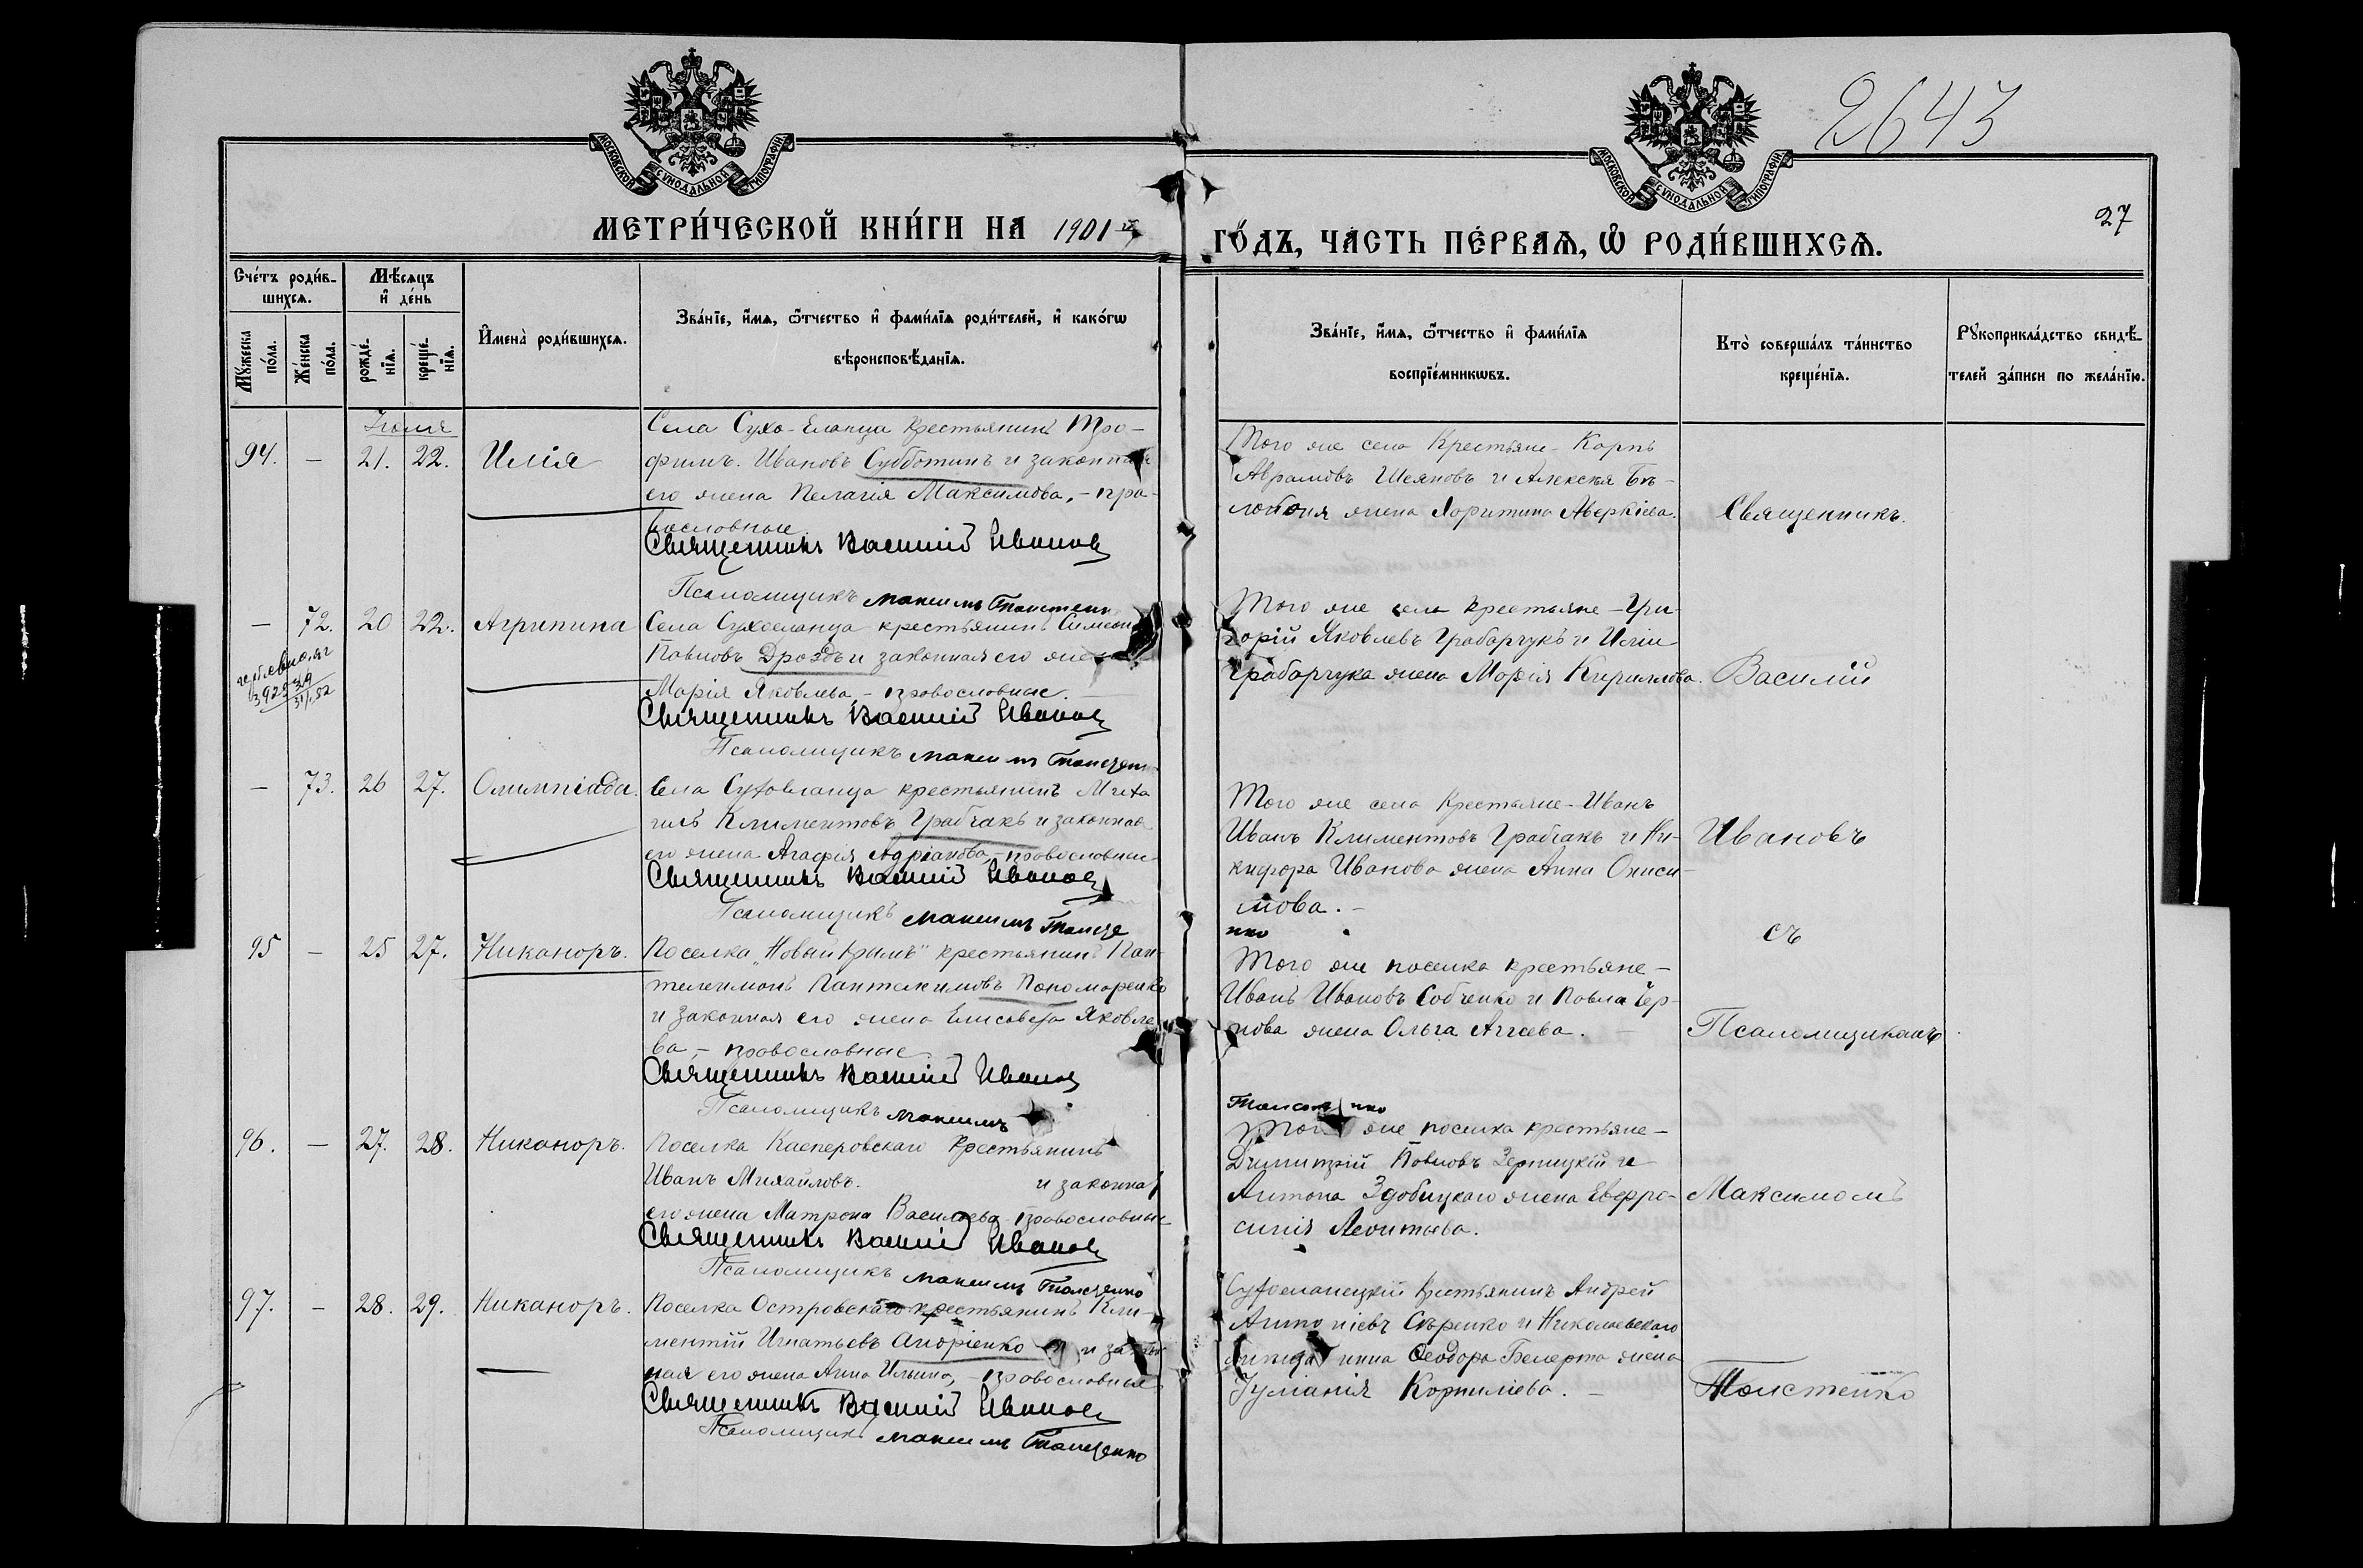 2643
27
МОСКОВСКОЙ СѴНОДАЛЬНОЙ ТИПОГРАФІИ
МОСКОВСКОЙ СѴНОДАЛЬНОЙ ТИПОГРАФІИ
МЕТРИ́ЧЕСКОЙ КНИ́ГИ НА 1901 й
ГО́ДЪ, ЧА́СТЬ ПЕ́РВАѦ, Ѡ РОДИ́ВШИХСѦ.
Сче́тъ роди́в-
шихсѧ.
Мꙋ́жеска по́ла.
Же́нска по́ла.
Мѣ́сѧцъ
и҆ де́нь
рожде́-нїѧ.
креще́-нїѧ.
И҆мена̀ роди́вшихсѧ.
Зва́нїе, и҆́мѧ, ѻ҆́тчество и҆ фами́лїѧ роди́телей, и҆ како́гѡ
вѣроисповѣ́данїѧ.
Зва́нїе, и҆́мѧ, ѻ҆́тчество и҆ фами́лїѧ
воспрїе́мникѡвъ.
Кто̀ соверша́лъ та́инство
креще́нїѧ.
Рꙋкоприкла́дство свидѣ́-
телей за́писи по жела́нїю.
Іюля
94. — 21. 22. Илія
Села Сухо-Еланца крестьянинъ Тро-
фимъ Ивановъ Субботинъ и законная
его жена Пелагія Максимова, - пра-
вославные.
Священникъ Василій Ивановъ
Псаломщикъ Максимъ Толстенко
Того же села Крестьяне - Карпъ
Аврамовъ Шеяновъ и Алексѣя Бѣ-
лобоня жена Харитина Аверкіева.
— 72. 20 22. Агрипина
Села Сухоеланца крестьянинъ Симеонъ
Павловъ Дроздъ и законная его жена
Марія Яковлева, - православные.
Священникъ Василій Ивановъ
Псаломщикъ Максимъ Толстенко
Того же села крестьяне - Гри-
горій Яковлевъ Грабарчукъ и Иліи
Грабарчука жена Марія Кириллова.
— 73. 26 27. Олимпіада.
Села Сухоеланца крестьянинъ Миха
илъ Климентовъ Грабчакъ и законная
его жена Агафія Адріанова, - православные
Священникъ Василій Ивановъ
Псаломщикъ Максимъ Толсте
нко
Того же села Крестьяне - Иванъ
Иванъ Климентовъ Грабчакъ и Ни-
кифора Иванова жена Анна Ониси-
мова. -
95 — 25 27. Никаноръ.
Поселка „Новый Крымъ" крестьянинъ Пан-
телеимонъ Пантелеимовъ Пономаренко
и законная его жена Елисавета Яковле
ва, - православные.
Священникъ Василій Ивановъ
Псаломщикъ Максимъ
Толсте нко
Того же поселка крестьяне -
Иванъ Ивановъ Собченко и Павла Чер-
нова жена Ольга Аггеева. -
96. — 27. 28. Никаноръ.
Поселка Касперовскаго Крестьянинъ
Иванъ Михайловъ. и законная
его жена Матрона Васильева православные
Священникъ Василій Ивановъ
Псаломщикъ Максимъ Толстенко
Того же поселка крестьяне -
Димитрій Павловъ Зерницкій и
Антона Здобицкаго жена Евфро-
синія Леонтьева.
97. — 28. 29. Никаноръ.
Поселка Островскаго крестьянинъ Кли-
ментій Игнатьевъ Андріенко и закон
ная его жена Анна Ильина, - православные
Священникъ Василій Ивановъ
Псаломщикъ Максимъ Толстенко
Сухоеланецкій крестьянинъ Андрей
Антоніевъ Сѣренко и Николаевскаго
Ѳеодора жена
Іуліанія Корниліева. -
Священникъ.
Василій
Ивановъ
съ
Псаломщикомъ
Максимомъ
Толстенко